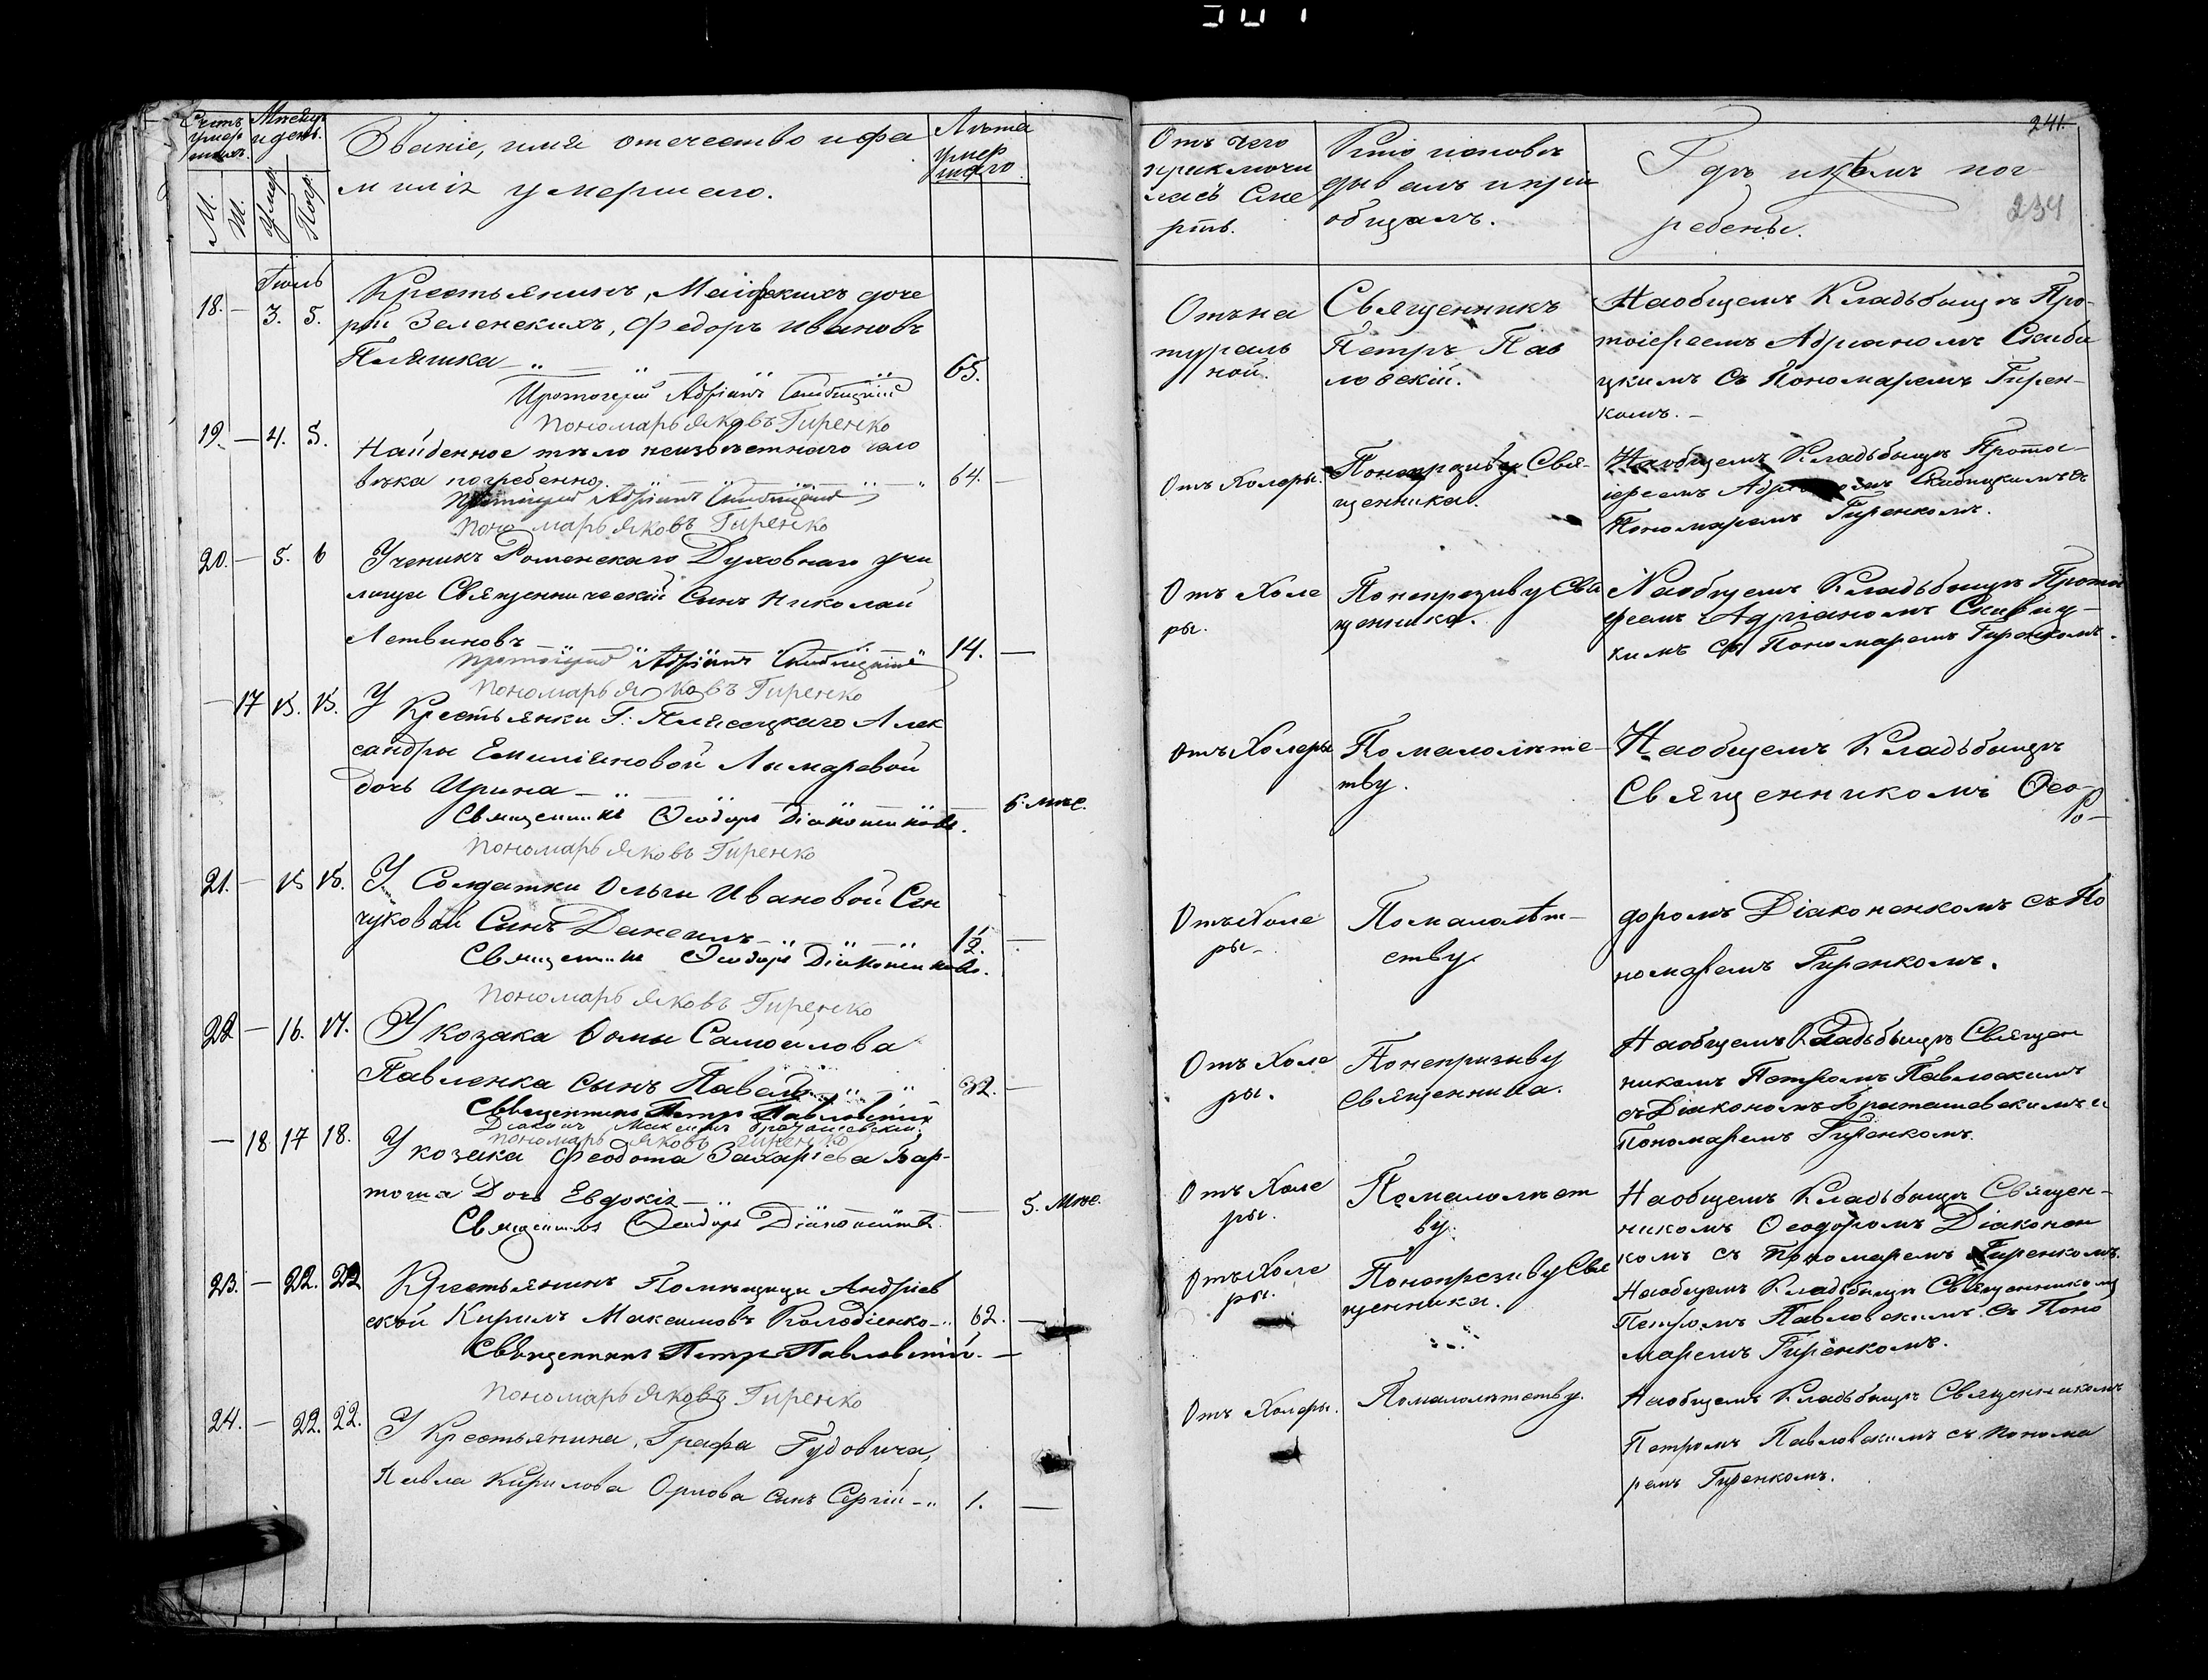 241.
234
Счетъ умер шихъ.
Мѣсяцъ и день.
М.
Ж.
Умер.
Погр.
Званіе, имя отечество и фа
миліѧ умершаго.
Лѣта
умер
шаго.
Отъ чего
приключи
лась Сме
рть.
Кто исповѣ
дывалъ и прі
общалъ.
Гдѣ и кѣмъ пог
ребены.
Іюль
18. — 3. 5.
Крестьянинъ, Маіорскихъ доче
рей Зеленскихъ, Федоръ Ивановъ
Пляшка 65.
Протоіерей Адріанъ Скибицкій
Пономарь Яковъ Гиренко
Отъ на
тураль
ной.
Священникъ
Петръ Пав
ловскій.
На общемъ Кладьбищѣ Про-
тоіереемъ Адріаномъ Скиби
цкимъ съ Пономаремъ Гирен-
комъ. —
19. — 4. 5.
Найденное тѣло неизвѣстнаго чело
вѣка погребенно. 64. —
Протоіерей Адріанъ Скибицкій
Пономарь Яковъ Гиренко
Отъ Холеры.
Понепризыву Свя-
щенника.
На общемъ Кладьбищѣ Протоі-
ереемъ Адріаномъ Скибицкимъ съ
Пономаремъ Гиренкомъ.
20. — 5. 6
Ученикъ Роменскаго Духовнаго учи
лища Священническій Сынъ Николай
Летвиновъ 14. —
Протоіерей Адріанъ Скибицкій
Пономарь Яковъ Гиренко
Отъ Холе
ры.
Понепризыву Свя
щенника.
На общемъ Кладьбищѣ Протоі
ереемъ Адріаномъ Скибиц-
кимъ съ Пономаремъ Гиренкомъ.
— 17 15. 15.
У Крестьянки Г. Плясецкаго Алек
сандры Емиліяновой Лимаревой
дочь Ирина — 6. мѣс.
Священникъ Ѳеодоръ Діяконенковъ.
Пономарь Яковъ Гиренко
Отъ Холеры
Помалолѣтс-
тву.
На общемъ Кладьбищѣ
Священникомъ Ѳео-
21. — 15 15.
У Солдатки Ольги Ивановой Сен
чуковой Сынъ Данеилъ 1½. —
Священникъ Ѳеодоръ Діяконенковъ.
Пономарь Яковъ Гиренко
Отъ Холе
ры —
Помалолѣт-
ству.
доромъ Діаконенкомъ съ По
номаремъ Гиренкомъ.
22 — 16. 17.
У козака Ѳомы Самоилова
Павленка сынъ Павелъ 32. —
Священникъ Петръ Павловскій
Діаконъ Максимъ Браташевскій
Пономарь Яковъ Гиренко
Отъ Холе
ры.
Понепризыву
Священника.
На общемъ Кладьбищѣ Священ
никомъ Петромъ Павловскимъ
съ Діакономъ Браташевскимъ и
Пономаремъ Гиренкомъ.
— 18 17 18.
У козака Феодота Захаріева Бар-
тоша Дочь Евдокія — 5. мѣс.
Священникъ Ѳеодоръ Діяконенковъ
Отъ Холе
ры.
Помалолѣтст
ву.
На общемъ Кладьбищѣ Священ-
никомъ Ѳеодоромъ Діаконен
комъ съ Пономаремъ Гиренкомъ.
23. — 22. 22
Крестьянинъ Помѣщицы Андріев
ской Кирилъ Максимовъ Колодіенко 62. —
Священникъ Петръ Павловскій. —
Пономарь Яковъ Гиренко
Отъ Холе
ры.
Понепризыву Свя
щенника.
На общемъ Кладьбищѣ Священникомъ
Петромъ Павловскимъ съ Поно
маремъ Гиренкомъ.
24. — 22. 22.
У Крестьянина, Графа Гудовича,
Павла Кирилова Орлова сынъ Сергій 1. —
Отъ Холеры.
Помалолѣтству.
На общемъ Кладьбищѣ Священникомъ
Петромъ Павловскимъ съ Понома
ремъ Гиренкомъ.